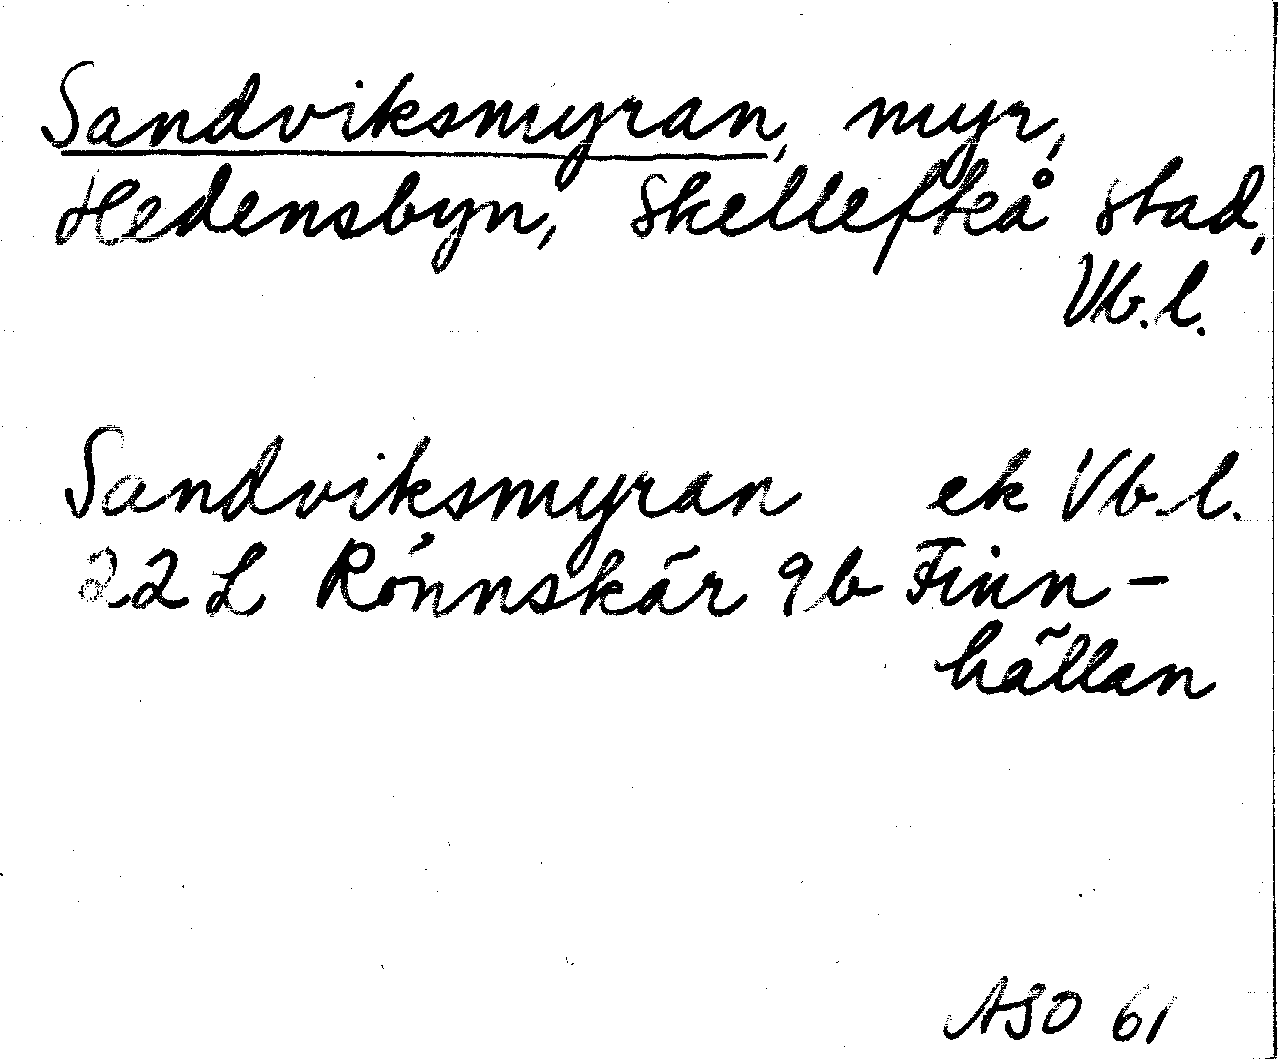 Sandviksmyran, myr,
Hedensbyn, Skellefteå stad,
Vb.l.
Sandviksmyran ek Vb.l.
22L Rönnskär 9b Finn-
hällan
ASO 61